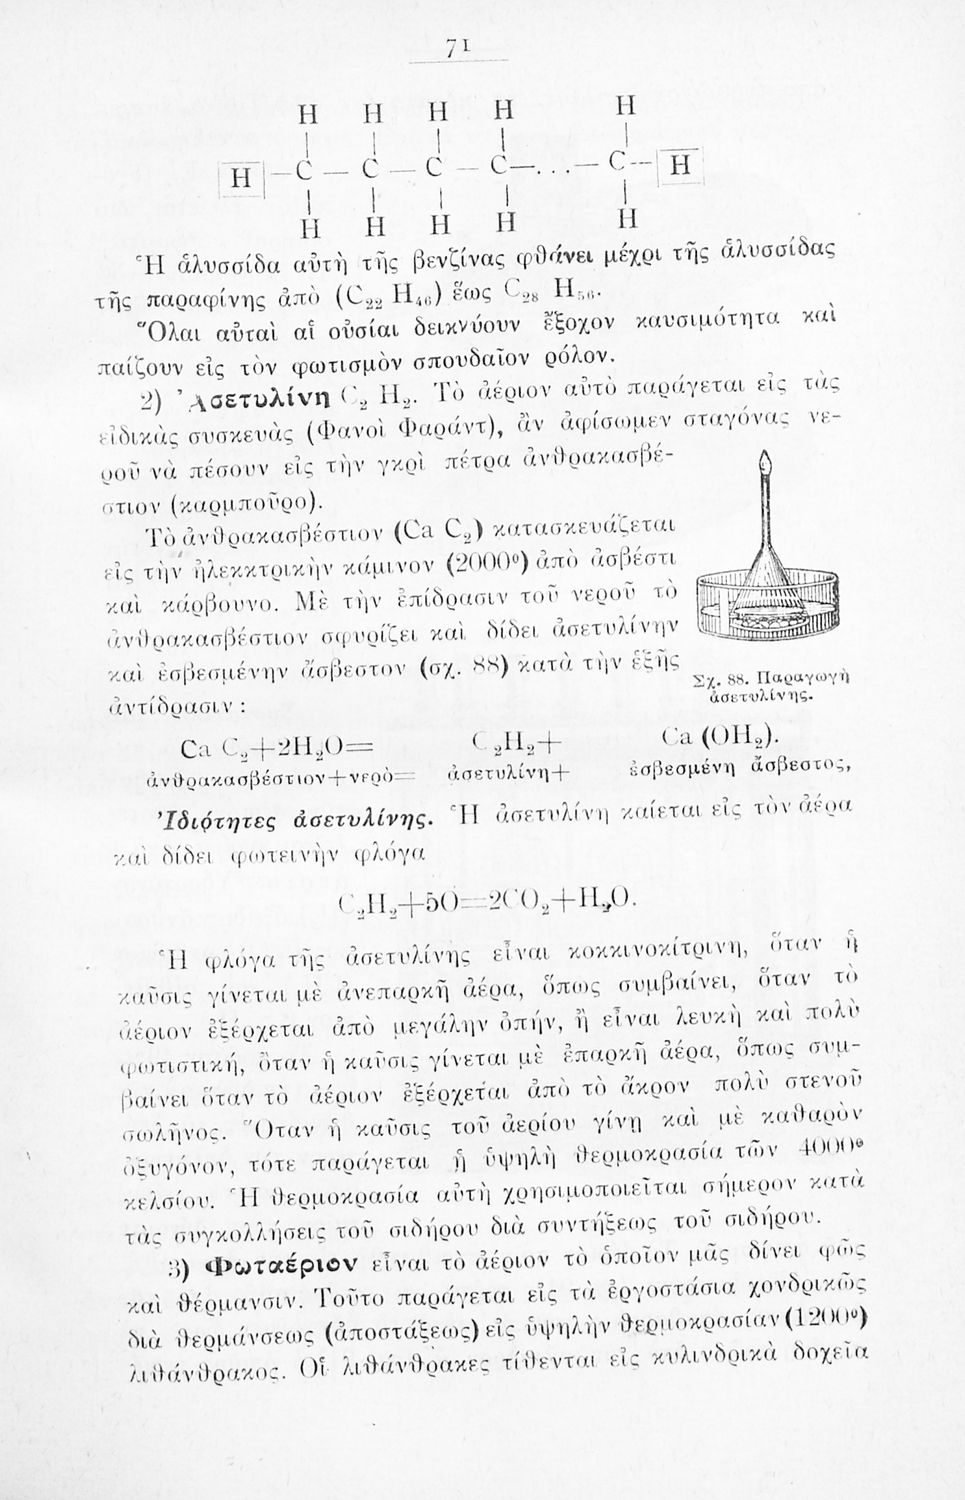 71
H H H H H
| | | | |
H —C — C — C — C—...—C-- H
| | | | |
H H H H H
Ἡ ἁλυσσίδα αὐτὴ τῆς βενζίνας φθάνει μέχρι τῆς ἁλυσσίδας
τῆς παραφίνης ἀπὸ (C₂₂ H₄₆) ἕως C₂₈ H₅₆.
Ὅλαι αὗταὶ αἱ οὐσίαι δεικνύουν ἔξοχον καυσιμότητα καὶ
παίζουν εἰς τὸν φωτισμὸν σπουδαῖον ρόλον.
2) Ἀσετυλίνη C₂ H₂. Τὸ ἀέριον αὐτὸ παράγεται εἰς τὰς
εἰδικὰς συσκευὰς (Φανοὶ Φαράντ), ἂν ἀφίσωμεν σταγόνας νε-
ροῦ νὰ πέσουν εἰς τὴν γκρὶ πέτρα ἀνθρακασβέ-
στιον (καρμποῦρο).
Τὸ ἀνθρακασβέστιον (Ca C₂) κατασκευάζεται
εἰς τὴν ἠλεκκτρικὴν κάμινον (2000°) ἀπὸ ἀσβέστι
καὶ κάρβουνο. Μὲ τὴν ἐπίδρασιν τοῦ νεροῦ τὸ
ἀνθρακασβέστιον σφυρίζει καὶ δίδει ἀσετυλίνην
καὶ ἐσβεσμένην ἄσβεστον (σχ. 88) κατὰ τὴν ἑξῆς
ἀντίδρασιν :
Σχ. 88. Παραγωγὴ
ἀσετυλίνης.
Ca C₂+2H₂O= C₂H₂+ Ca (OH₂).
ἀνθρακασβέστιον+νερὸ= ἀσετυλίνη+ ἐσβεσμένη ἄσβεστος,
Ἰδιότητες ἀσετυλίνης. Ἡ ἀσετυλίνη καίεται εἰς τὸν ἀέρα
καὶ δίδει φωτεινὴν φλόγα
C₂H₂+5O=2CO₂+H₂O.
Ἡ φλόγα τῆς ἀσετυλίνης εἶναι κοκκινοκίτρινη, ὅταν ἡ
καῦσις γίνεται μὲ ἀνεπαρκῆ ἀέρα, ὅπως συμβαίνει, ὅταν τὸ
ἀέριον ἐξέρχεται ἀπὸ μεγάλην ὀπήν, ἢ εἶναι λευκὴ καὶ πολὺ
φωτιστική, ὅταν ἡ καῦσις γίνεται μὲ ἐπαρκῆ ἀέρα, ὅπως συμ-
βαίνει ὅταν τὸ ἀέριον ἐξέρχεται ἀπὸ τὸ ἄκρον πολὺ στενοῦ
σωλῆνος. Ὅταν ἡ καῦσις τοῦ ἀερίου γίνῃ καὶ μὲ καθαρὸν
ὀξυγόνον, τότε παράγεται ἡ ὑψηλὴ θερμοκρασία τῶν 4000°
κελσίου. Ἡ θερμοκρασία αὐτὴ χρησιμοποιεῖται σήμερον κατὰ
τὰς συγκολλήσεις τοῦ σιδήρου διὰ συντήξεως τοῦ σιδήρου.
3) Φωταέριον εἶναι τὸ ἀέριον τὸ ὁποῖον μᾶς δίνει φῶς
καὶ θέρμανσιν. Τοῦτο παράγεται εἰς τὰ ἐργοστάσια χονδρικῶς
διὰ θερμάνσεως (ἀποστάξεως) εἰς ὑψηλὴν θερμοκρασίαν (1200°)
λιθάνθρακος. Οἱ λιθάνθρακες τίθενται εἰς κυλινδρικὰ δοχεῖα